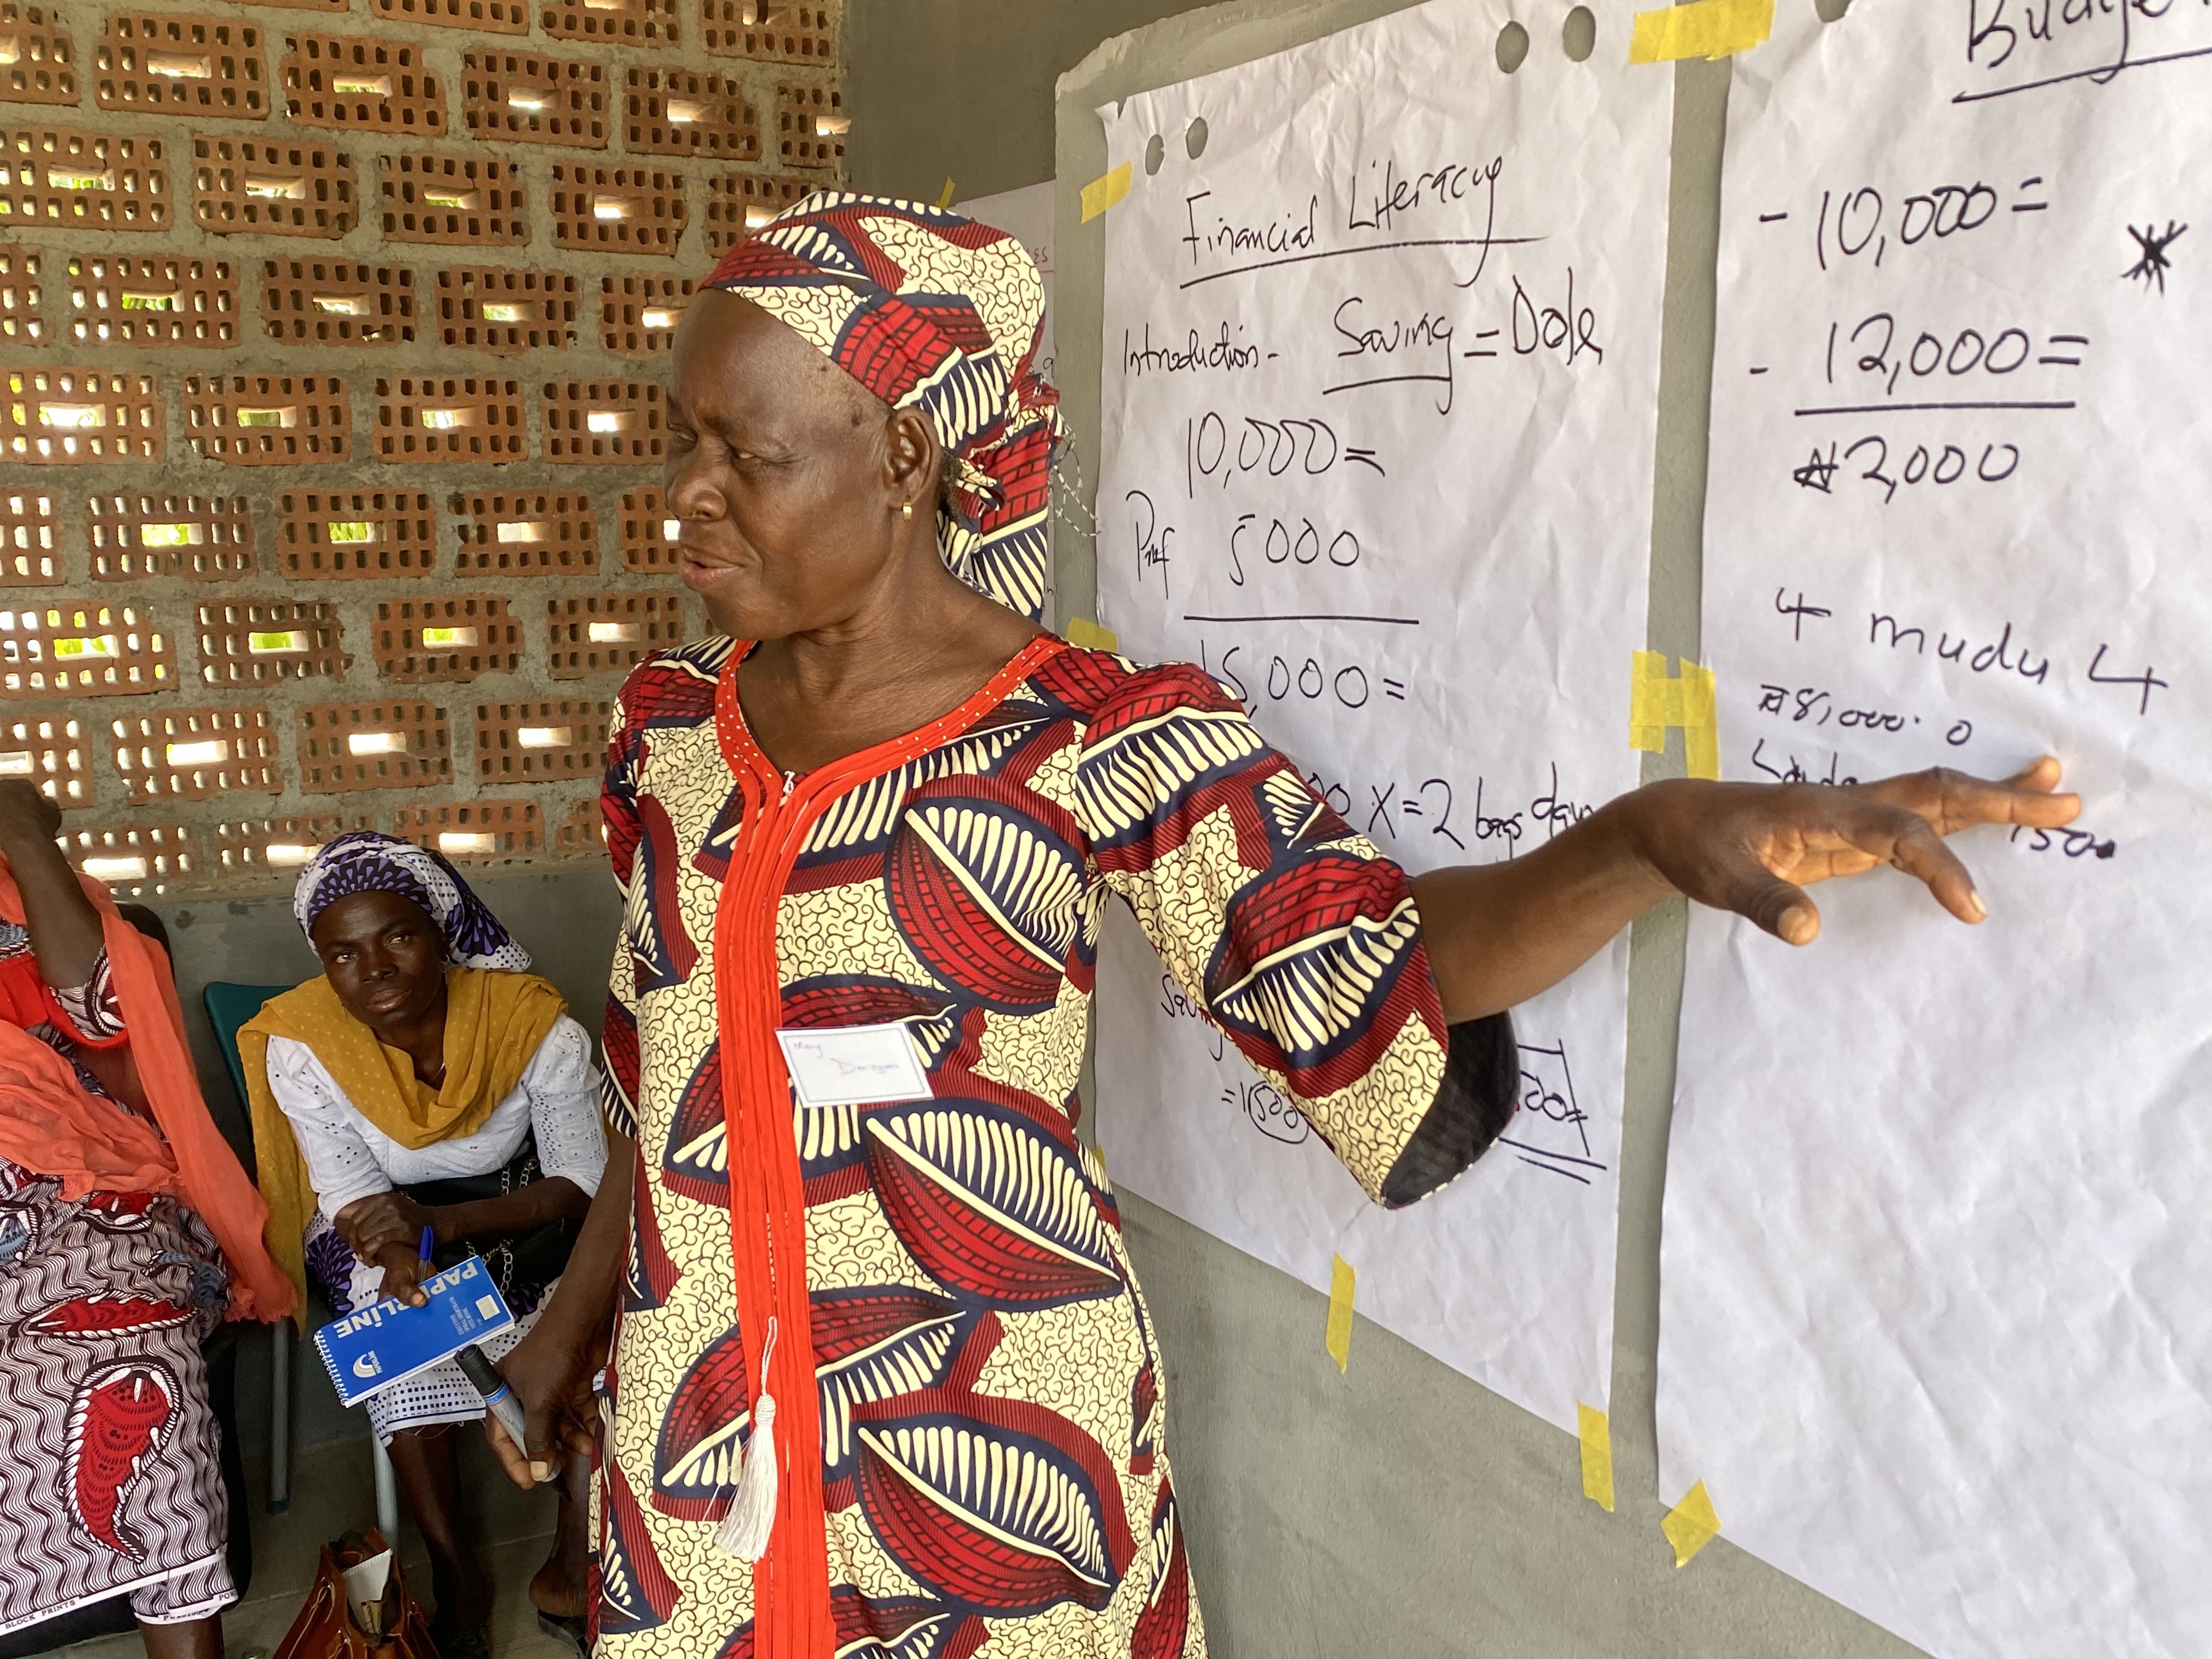 Financial Literacy
Introduction - Saving = Dole
10,000=
Prof 5000
15,000=
X=2 bags
= 1500
- 10,000=
- 12,000=
₦2,000
4 mudu 4
₦8,000.0
1500
Mary
PAPERLINE
BLOCK PRINTS